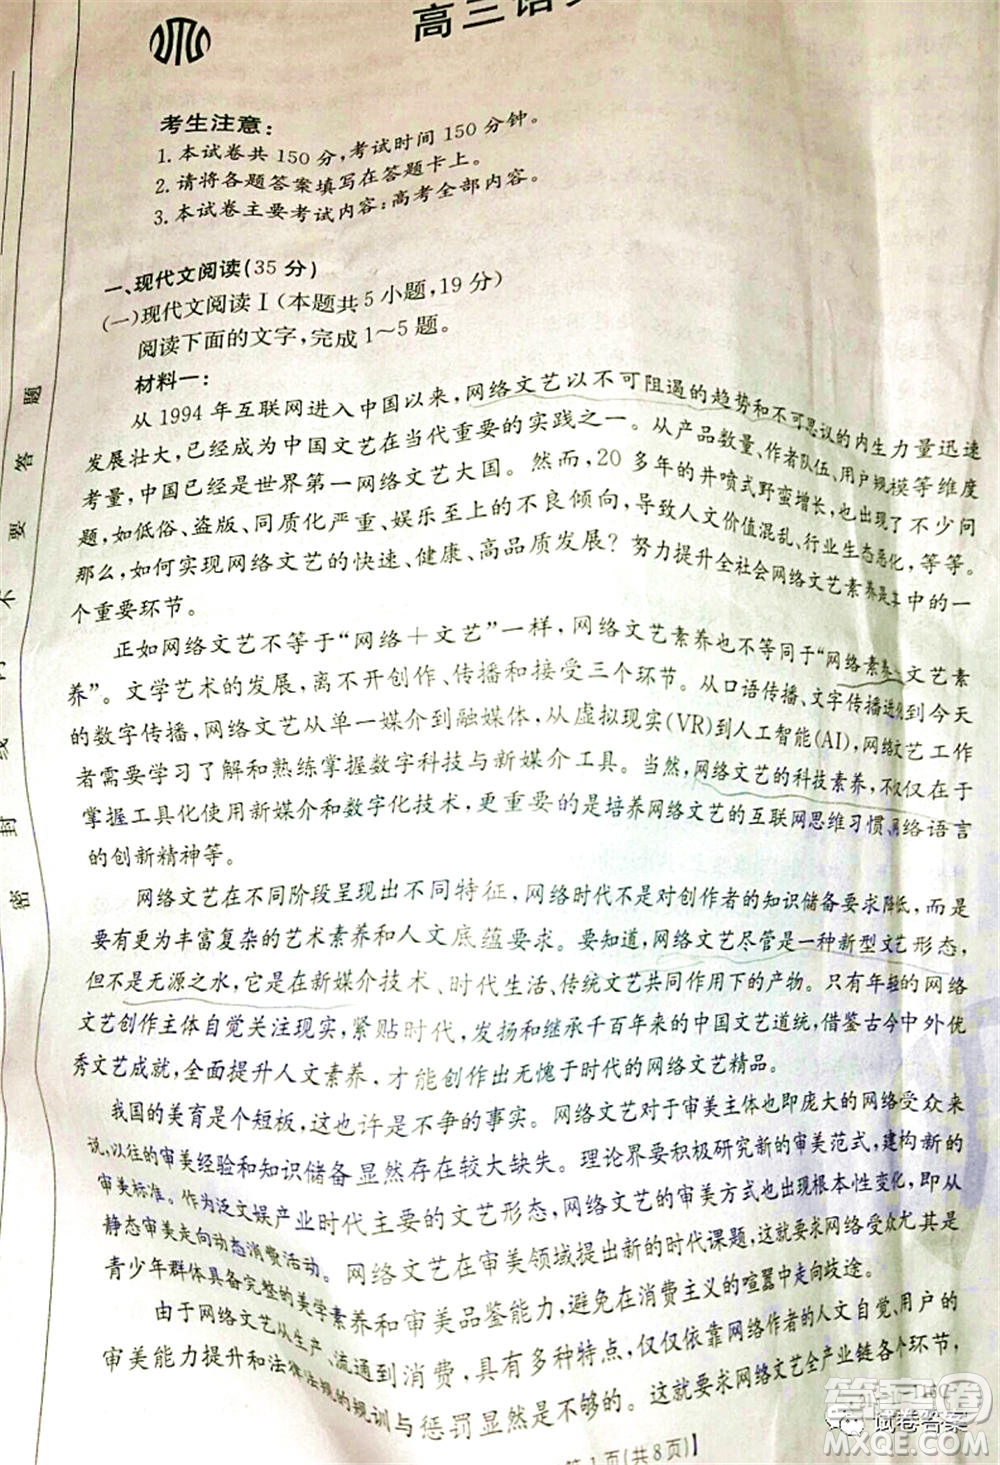 高三语
考生注意:
1.本试卷共150分,考试时间150分钟。
2.请将各题答案填写在答题卡上。
3.本试卷主要考试内容:高考全部内容。
一、现代文阅读(35分)
(一)现代文阅读Ⅰ(本题共5小题,19分)
阅读下面的文字,完成1~5题。
材料一:
从1994年互联网进入中国以来,网络文艺以不可阻遏的趋势和不可思议的内生力量迅速
发展壮大,已经成为中国文艺在当代重要的实践之一。从产品数量、作者队伍、用户规模等维度
考量,中国已经是世界第一网络文艺大国。然而,20多年的井喷式野蛮增长,也出现了不少问
题,如低俗、盗版、同质化严重、娱乐至上的不良倾向,导致人文价值混乱、行业生态恶化,等等。
那么,如何实现网络文艺的快速、健康、高品质发展?努力提升全社会网络文艺素养是其中的一
个重要环节。
正如网络文艺不等于“网络+文艺”一样,网络文艺素养也不等同于“网络素养+文艺素
养”。文学艺术的发展,离不开创作、传播和接受三个环节。从口语传播、文字传播进化到今天
的数字传播,网络文艺从单一媒介到融媒体,从虚拟现实(VR)到人工智能(AI),网络文艺工作
者需要学习了解和熟练掌握数字科技与新媒介工具。当然,网络文艺的科技素养,不仅仅在于
掌握工具化使用新媒介和数字化技术,更重要的是培养网络文艺的互联网思维习惯、网络语言
的创新精神等。
网络文艺在不同阶段呈现出不同特征,网络时代不是对创作者的知识储备要求降低,而是
要有更为丰富复杂的艺术素养和人文底蕴要求。要知道,网络文艺尽管是一种新型文艺形态,
但不是无源之水,它是在新媒介技术、时代生活、传统文艺共同作用下的产物。只有年轻的网络
文艺创作主体自觉关注现实,紧贴时代,发扬和继承千百年来的中国文艺道统,借鉴古今中外优
秀文艺成就,全面提升人文素养,才能创作出无愧于时代的网络文艺精品。
我国的美育是个短板,这也许是不争的事实。网络文艺对于审美主体也即庞大的网络受众来
说,以往的审美经验和知识储备显然存在较大缺失。理论界要积极研究新的审美范式,建构新的
审美标准。作为泛文娱产业时代主要的文艺形态,网络文艺的审美方式也出现根本性变化,即从
静态审美走向动态消费活动。网络文艺在审美领域提出新的时代课题,这就要求网络受众尤其是
青少年群体具备完整的美学素养和审美品鉴能力,避免在消费主义的喧嚣中走向歧途。
由于网络文艺从生产、流通到消费,具有多种特点,仅仅依靠网络作者的人文自觉、用户的
审美能力提升和法律法规的规训与惩罚显然是不够的。这就要求网络文艺全产业链各个环节,
第1页(共8页)】
16C
密
封
线
内
不
要
答
题
答案圈
MXQE.COM
试卷答案